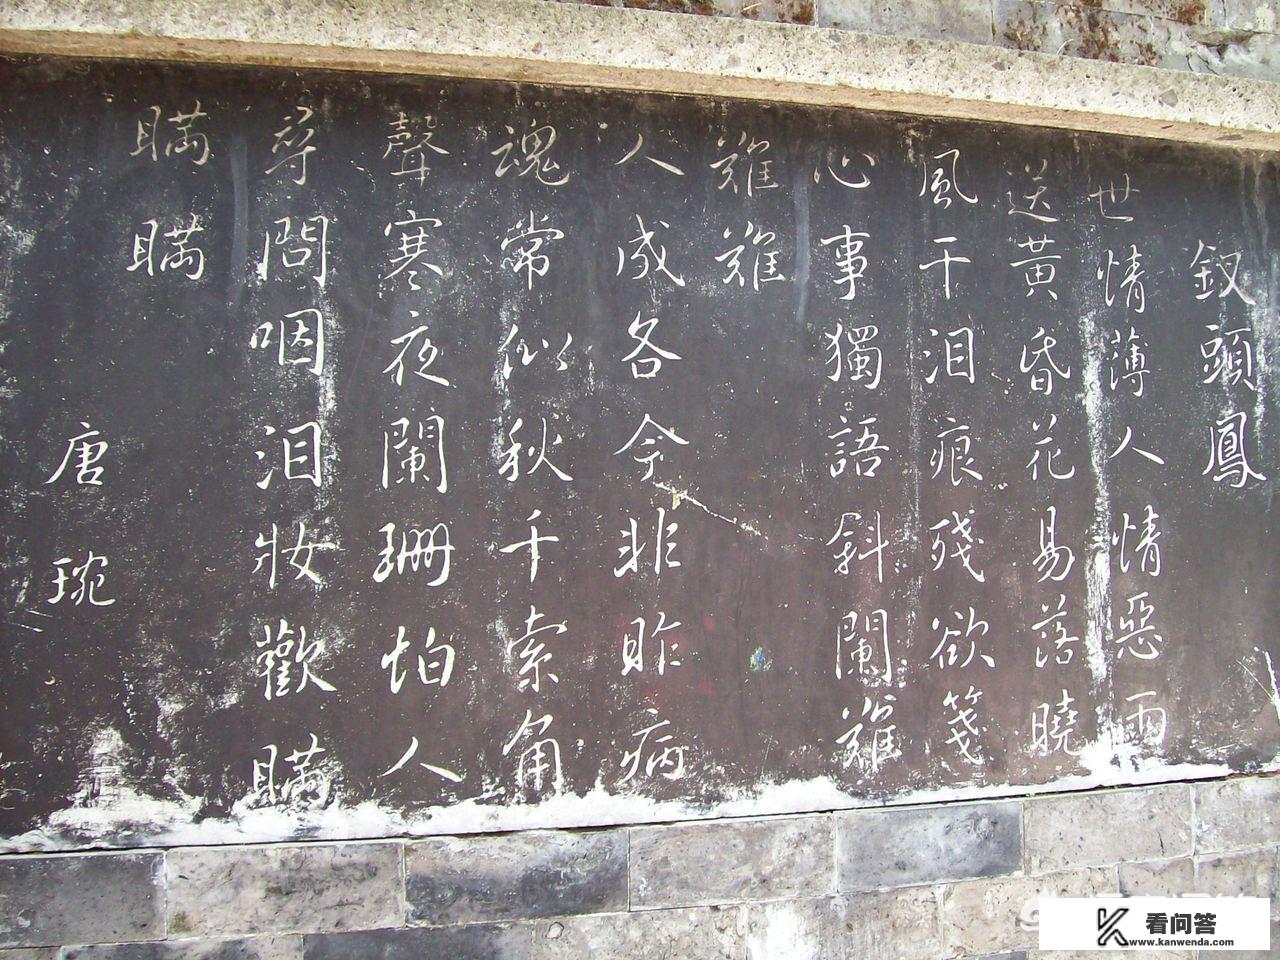 釵頭鳳
世情薄人情惡雨
送黃昏花易落曉
風干泪痕殘欲箋
心事獨語斜闌難
難難
人成各今非昨病
魂常似秋千索角
聲寒夜闌珊怕人
尋問咽泪妝歡瞞
瞞瞞
唐琬
看问答
www.kanwenda.com